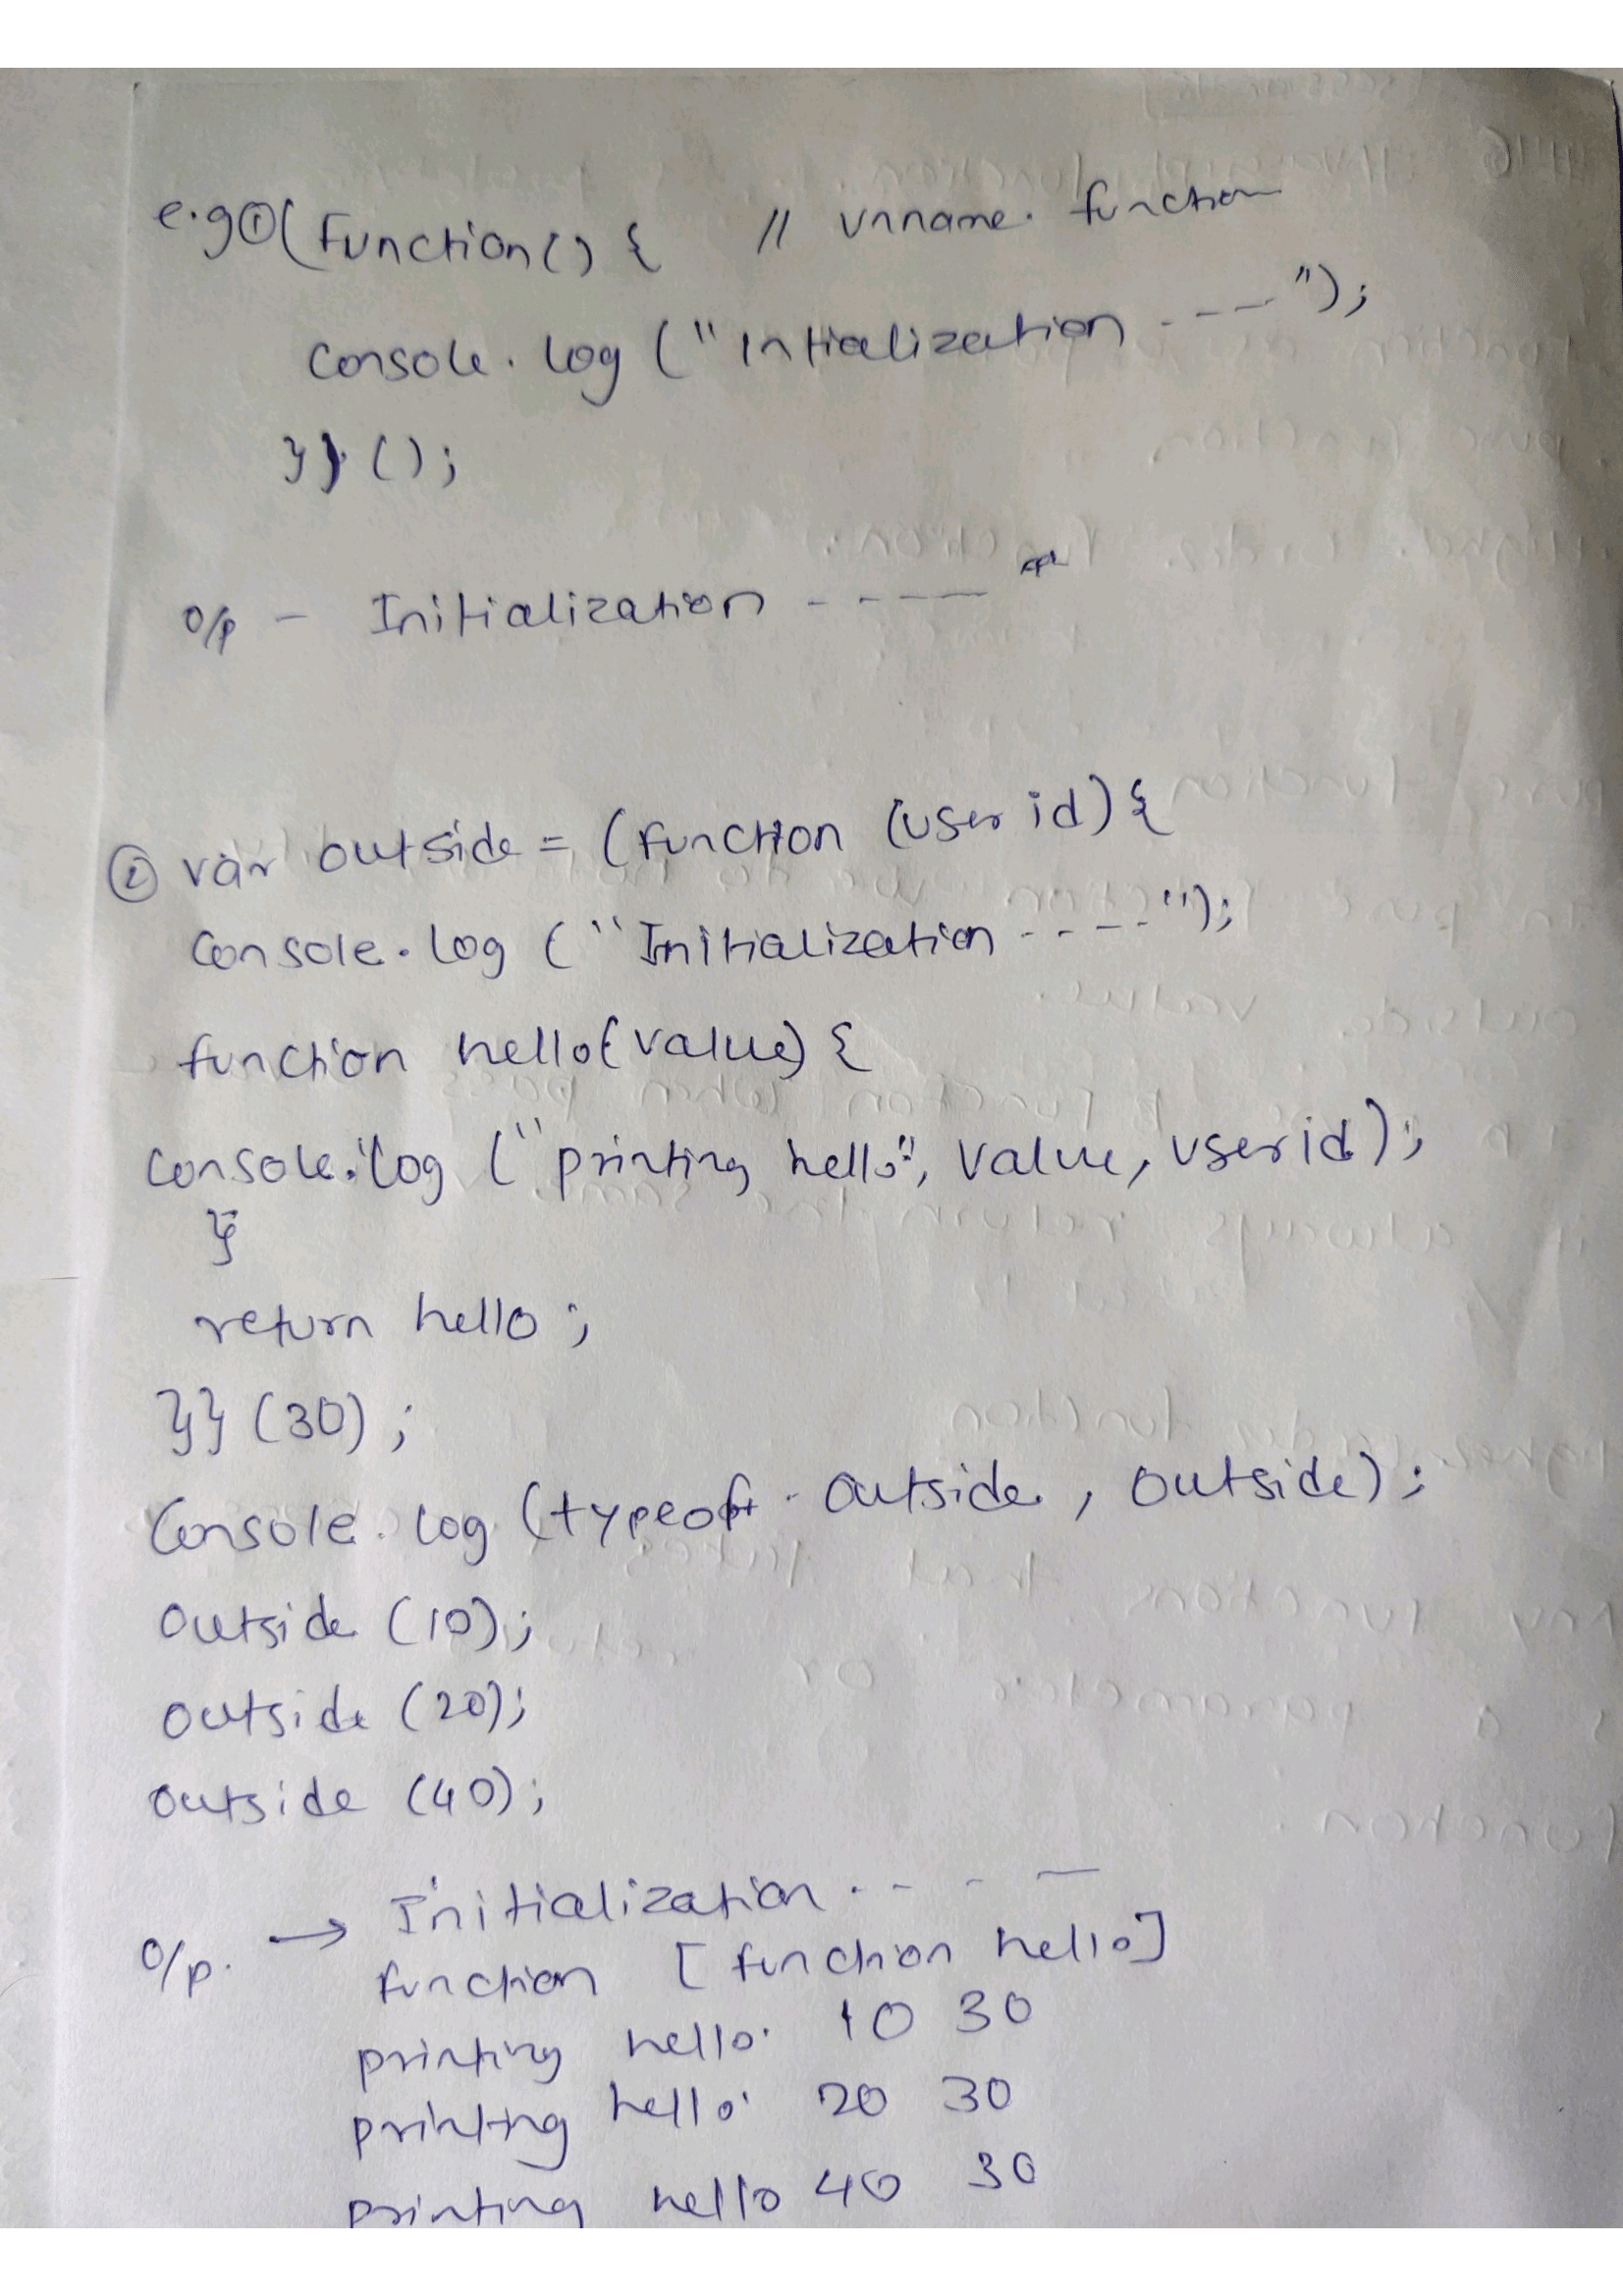 e.g ① (function() { // unname. function
console.log ("Intialization ----");
}) ();
o/p - Initialization -----
② var outside = (function (userid) {
console.log ("Initialization ----");
function hello(value) {
console.log ("printing hello", value, userid);
}
return hello;
}} (30);
Console.log (typeof outside, outside);
outside (10);
outside (20);
outside (40);
o/p. → Initialization .----
function [function hello]
printing hello 10 30
printing hello 20 30
printing hello 40 30